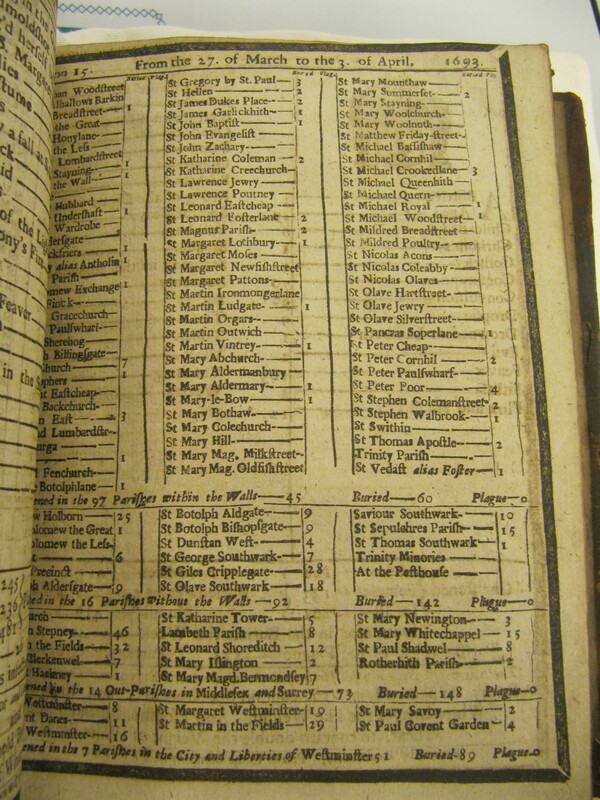 on 15. From the 27. of March to the 3. of April, 1693.
Buried Plag. Buried Plag. Buried Pla
an Woodstreet St Gregory by St. Paul— 3 St Mary Mounthaw—
lhallows Barkin St Hellen— 2 St Mary Summerset— 2
Breadstreet— 1 St James Dukes Place— 2 St Mary Stayning—
the Great St James Garlickhith— 1 St Mary Woolchurch—
Honylane— St John Baptist— 1 St Mary Woolnoth—
the Less St John Evangelist— St Matthew Friday-street—
Lombardstreet St John Zachary— St Michael Bassishaw—
Stayning— 1 St Katharine Coleman— 2 St Michael Cornhil—
the Wall— 1 St Katharine Creechurch— St Michael Crookedlane— 3
St Lawrence Jewry— St Michael Queenhith—
Hubbard St Lawrence Poutney— St Michael Quern—
Undershaft— 1 St Leonard Eastcheap— St Michael Royal 1
Wardrobe St Leonard Fosterlane— 2 St Michael Woodstreet— 1
dersgate— St Magnus Parish— 2 St Mildred Breadstreet—
ckfriers 1 St Margaret Lothbury— 1 St Mildred Poultry—
alias Antholin St Margaret Moses— St Nicholas Acons—
Parish— St Margaret Newfishstreet St Nicolas Coleabby—
mew Exchange 1 St Margaret Pattons— St Nicolas Olaves—
St Martin Ironmongerlane St Olave Hartstreet—
Gracechurch— St Martin Ludgate— 1 St Olave Jewry—
Paulswharf— St Martin Orgars— St Olave Silverstreet—
Sherehog St Martin Outwich— St Pancras Soperlane— 1
h Billingsgate— St Martin Vintrey— 1 St Peter Cheap—
Church— 7 St Mary Abchurch— St Peter Cornhil— 2
ophers— 1 St Mary Aldermanbury St Peter Paulswharf—
nt Eastcheap— St Mary Aldermary— 1 St Peter Poor— 4
Backchurch— St Mary-le-Bow— 1 St Stephen Colemanstreet 2
n East— 3 St Mary Bothaw— St Stephen Walbrook— 1
nd Lumbardstr— St Mary Colechurch— St Swithin—
urga— St Mary Hill— St Thomas Apostle— 2
1 St Mary Mag. Milkstreet— Trinity Parish—
Fenchurch— St Mary Mag. Oldfishstreet St Vedast alias Foster— 1
Botolphlane— 1
ened in the 97 Parishes within the Walls— 45 Buried— 60 Plague— 0
w Holborn— 25 St Botolph Aldgate— 9 Saviour Southwark— 10
olomew the Great 1 St Botolph Bishopsgate— 9 St Sepulchres Parish— 15
olomew the Less St Dunstan West— 4 St Thomas Southwark— 1
6 St George Southwark— 7 Trinity Minories—
Precinct— St Giles Cripplegate— 28 At the Pesthouse—
h Aldersgate— 9 St Olave Southwark— 18
ned in the 16 Parishes without the Walls— 92 Buried— 142 Plague— 0
St Katharine Tower— 5 St Mary Newington— 3
n Stepney— 46 Lambeth Parish— 8 St Mary Whitechappel— 15
the Fields— 32 St Leonard Shoreditch— 12 St Paul Shadwel— 8
Clerkenwel— 7 St Mary Islington— 2 Rotherhith Parish— 2
Hackney— 1 St Mary Magd. Bermondsey 7
ened in the 14 Out-Parishes in Middlesex and Surrey— 73 Buried— 148 Plague— 0
Westminster— 8 St Margaret Westminster— 19 St Mary Savoy— 2
nt Danes— 11 St Martin in the Fields— 29 St Paul Covent Garden— 4
Westminster— 16
ened in the 7 Parishes in the City and Liberties of Westminster 51 Buried- 89 Plague- 0